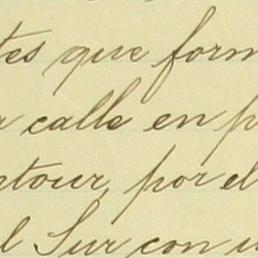 tes que form
calle en p
tour, por el
l Sur con u